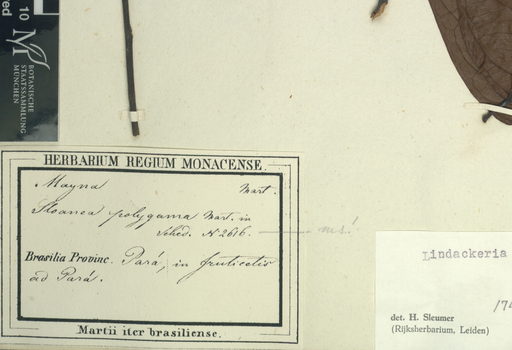 10
BOTANISCHE
STAATSSAMMLUNG
MÜNCHEN
HERBARIUM REGIUM MONACENSE.
Mayna Mart.
Sloanea polygama Mart. in
Sched. N 2616. ms!
Brasilia Provinc. Pará, in fruticetis
ad Pará.
Martii iter brasiliense.
Lindackeria
det. H. Sleumer
(Rijksherbarium, Leiden)